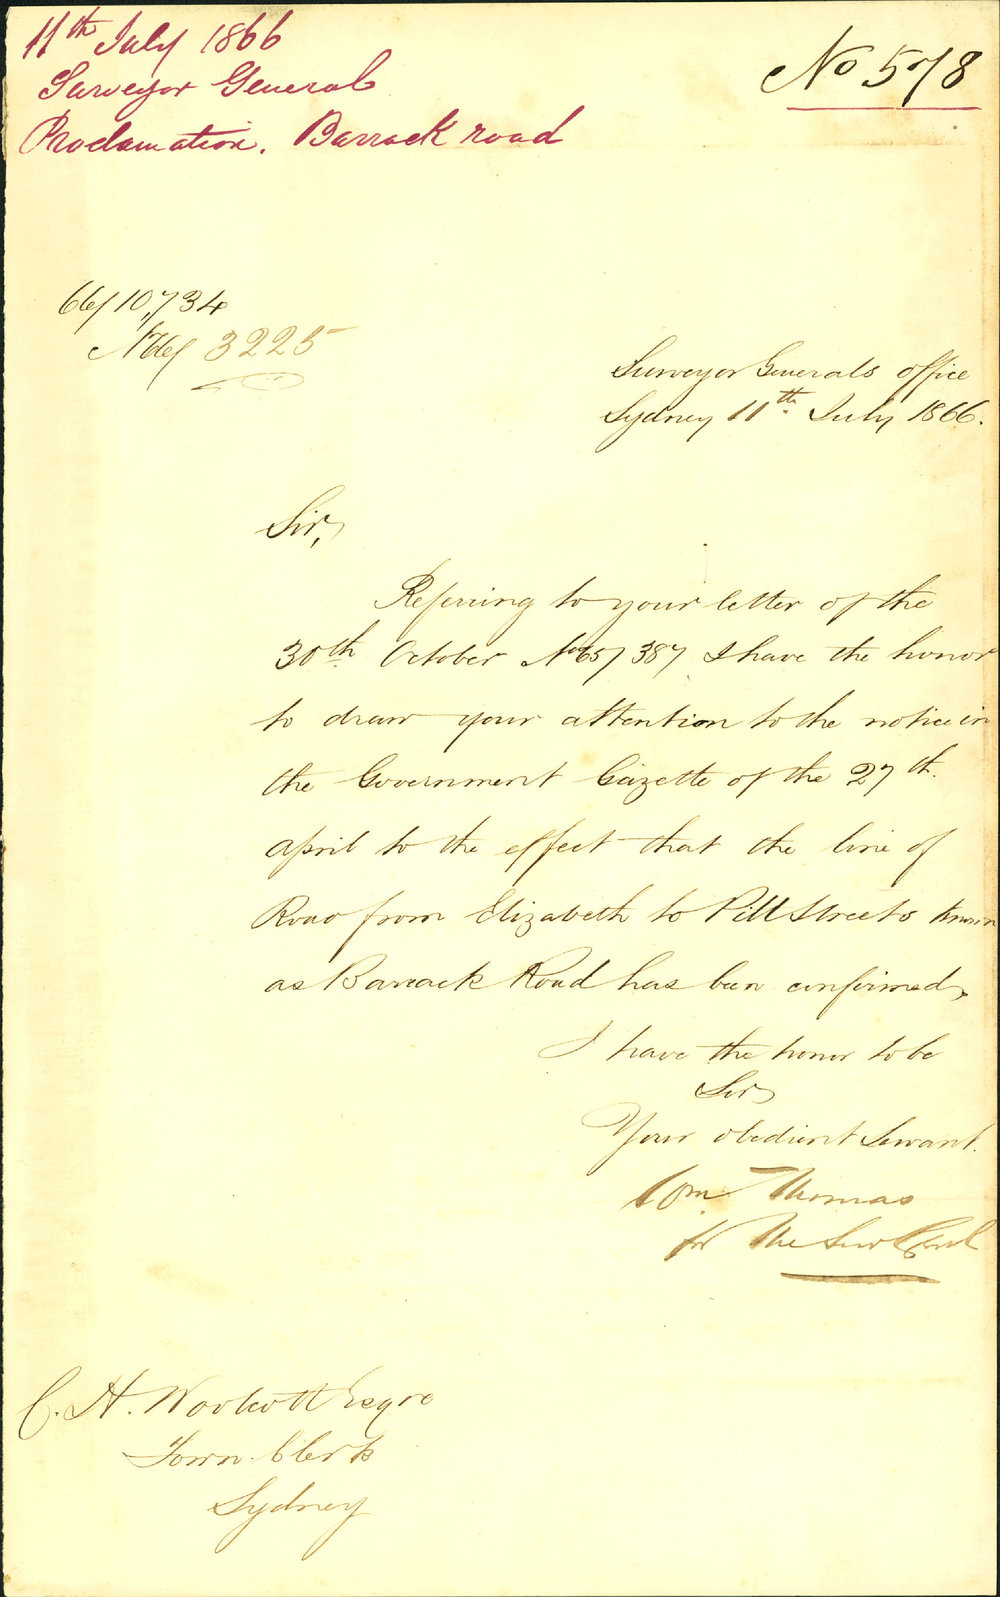 11th July 1866
Surveyor General
Proclamation. Barrack road
No 578
66/10,734
No 66/ 3225
Surveyor Generals office
Sydney 11th July 1866.
Sir,
Referring to your letter of the
30th October No 65/387 I have the honor
to draw your attention to the notice in
the Government Gazette of the 27th.
april to the effect that the line of
Road from Elizabeth to Pitt Streets known
as Barrack Road has been confirmed,
I have the honor to be
Sir
Your obedient Servant.
Wm Thomas
for The Sur Genl
C. H. Woolcott Esqre
Town Clerk
Sydney